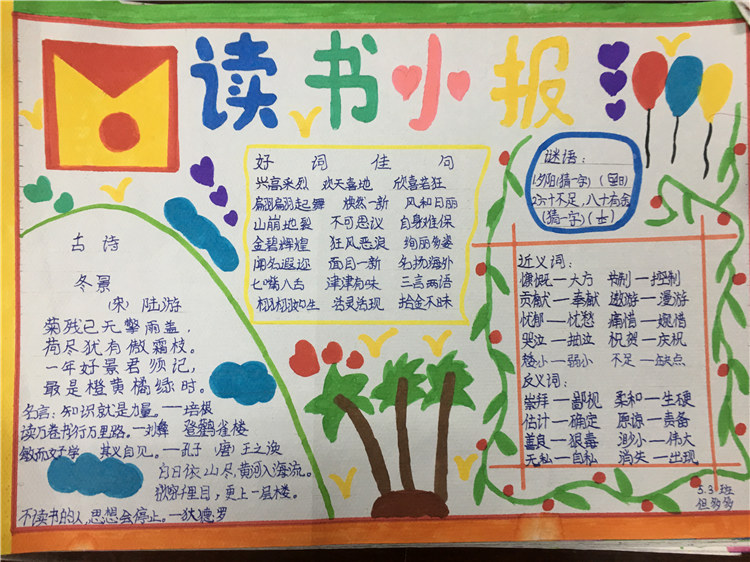 读书小报
好词佳句
兴高采烈 欢天喜地 欣喜若狂
翩翩起舞 焕然一新 风和日丽
山崩地裂 不可思议 自身难保
金碧辉煌 狂风恶浪 绚丽多姿
闻名遐迩 面目一新 名扬海外
七嘴八舌 津津有味 三言两语
栩栩如生 活灵活现 拾金不昧
谜语:
1夕阳(猜一字)(
2六十不足,八十有余
(猜一字)(
古诗
冬景
(宋)陆游
菊残已无擎雨盖,
荷尽犹有傲霜枝。
一年好景君须记,
最是橙黄橘绿时。
名言:知识就是力量。—培根
读万卷书行万里路。—刘彝 登鹳雀楼
敏而好学 其义自见。—孔子 (唐)王之涣
白日依山尽,黄河入海流。
欲穷千里目,更上一层楼。
不读书的人,思想会停止。—狄德罗
近义词:
慷慨—大方 抑制—控制
贡献—奉献 遨游—漫游
忧郁—忧愁 痛惜—惋惜
哭泣—抽泣 祝贺—庆祝
矮小—弱小 不足—缺点
反义词:
崇拜—鄙视 柔和—生硬
估计—确定 原谅—责备
善良—狠毒 渺小—伟大
无私—自私 消失—出现
5.3班